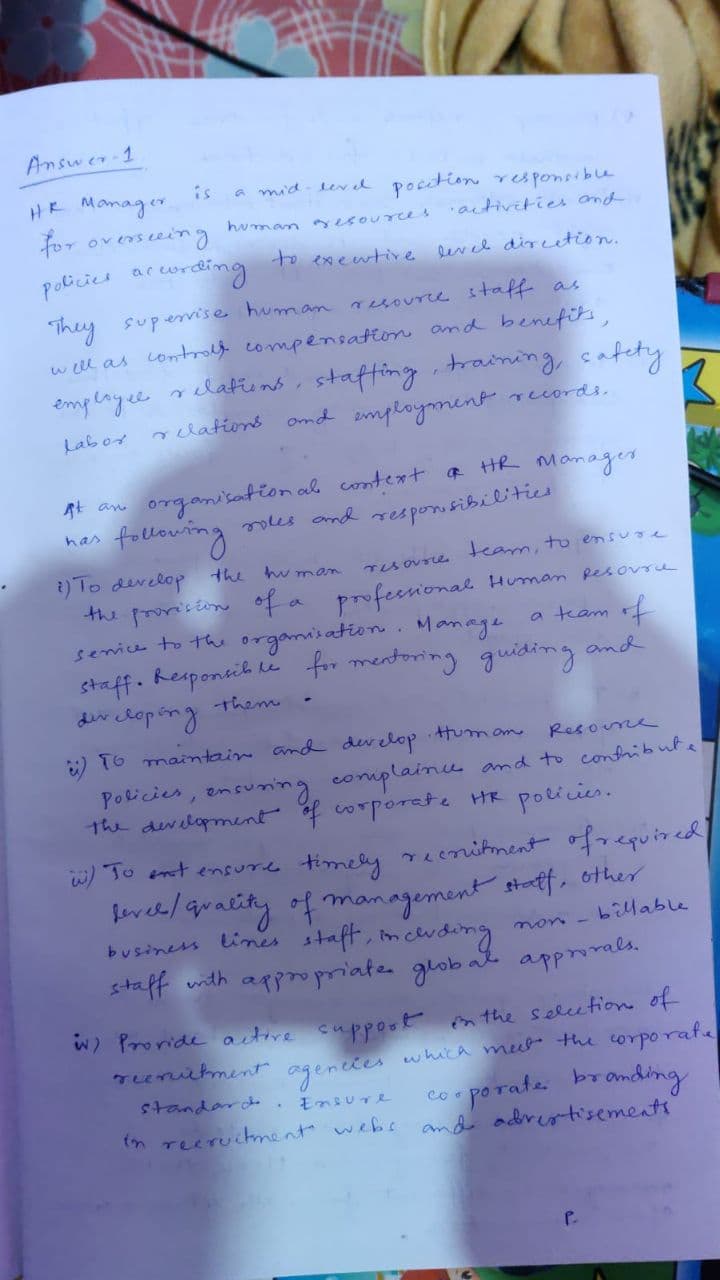 Answer-1
HR Manager is a mid-level position responsible
for overseeing human resources activities and
policies according to executive level direction.
They supervise human resource staff as
well as controls compensation and benefits,
employee relations, staffing, training, safety
labor relations and employment records.
At an organisational context a HR Manager
has following roles and responsibilities
i) To develop the human resource team, to ensure
the provision of a professional Human Resource
service to the organisation. Manage a team of
staff. Responsible for mentoring guiding and
developing them.
ii) To maintain and develop Human Resource
Policies, ensuring complaince and to contribute
the development of corporate HR policies.
iii) To ensure timely recruitment of required
level/quality of management staff, other
business lines staff, including non-billable
staff with appropriate global approvals.
iv) Provide active support in the selection of
recruitment agencies which meet the corporate
standard. Ensure corporate branding
in recruitment webs and advertisements
P.